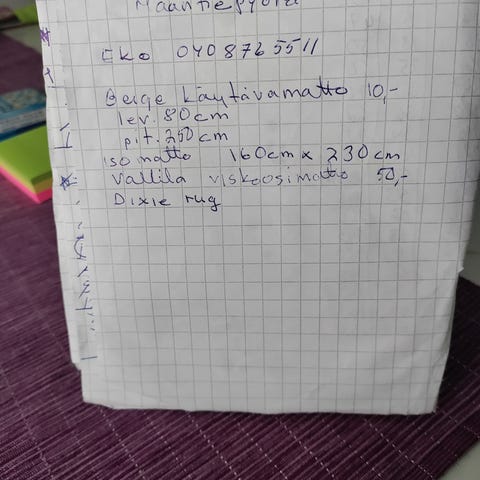 Maantiepyörä
Eko 040 8765511
Beige käytävämatto 10,-
lev. 80cm
pit. 250cm
iso matto 160cm x 230cm
Vallila viskoosimatto 50,-
Dixie rug